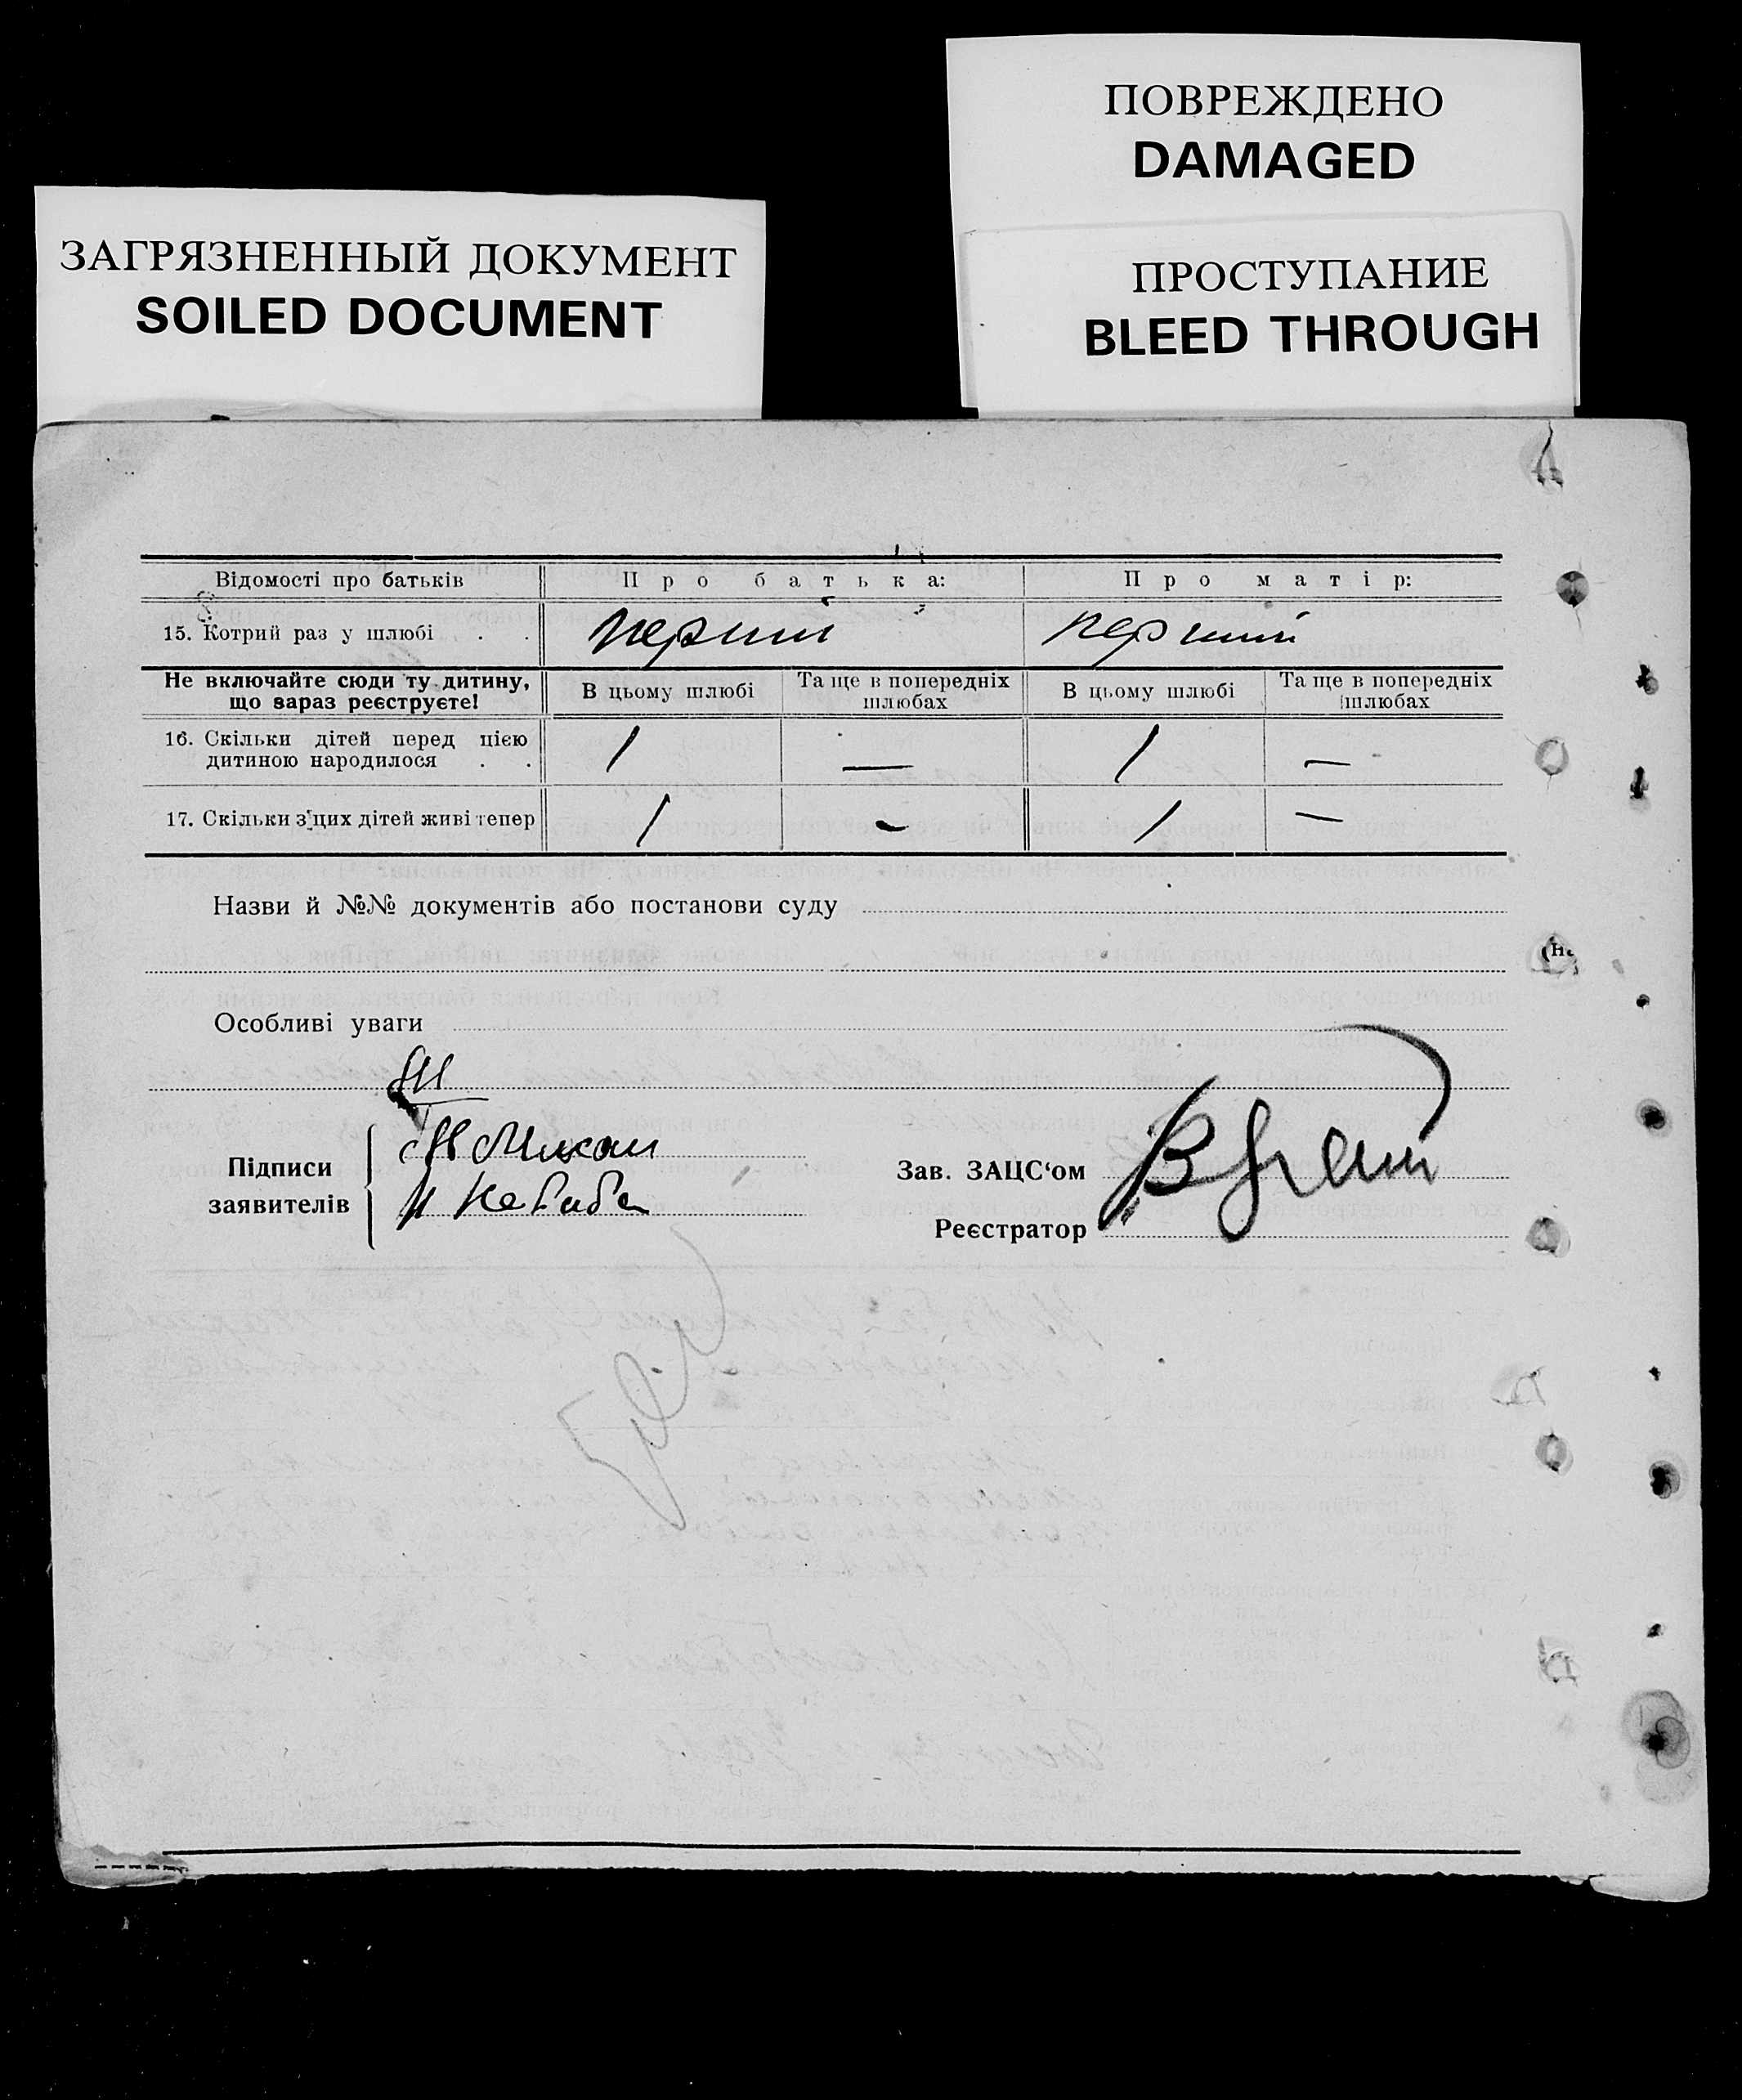 ПОВРЕЖДЕНО
DAMAGED
ЗАГРЯЗНЕННЫЙ ДОКУМЕНТ
SOILED DOCUMENT
ПРОСТУПАНИЕ
BLEED THROUGH
Відомості про батьків Про батька: Про матір:
15. Котрий раз у шлюбі . . перший перший
Не включайте сюди ту дитину, що зараз реєструєте! В цьому шлюбі Та ще в попередніх шлюбах В цьому шлюбі Та ще в попередніх шлюбах
16. Скільки дітей перед цією дитиною народилося . . 1 — 1 —
17. Скільки з цих дітей живі тепер 1 - 1 —
Назви й №№ документів або постанови суду
Особливі уваги
Підписи заявителів
Зав. ЗАЦС'ом
Реєстратор